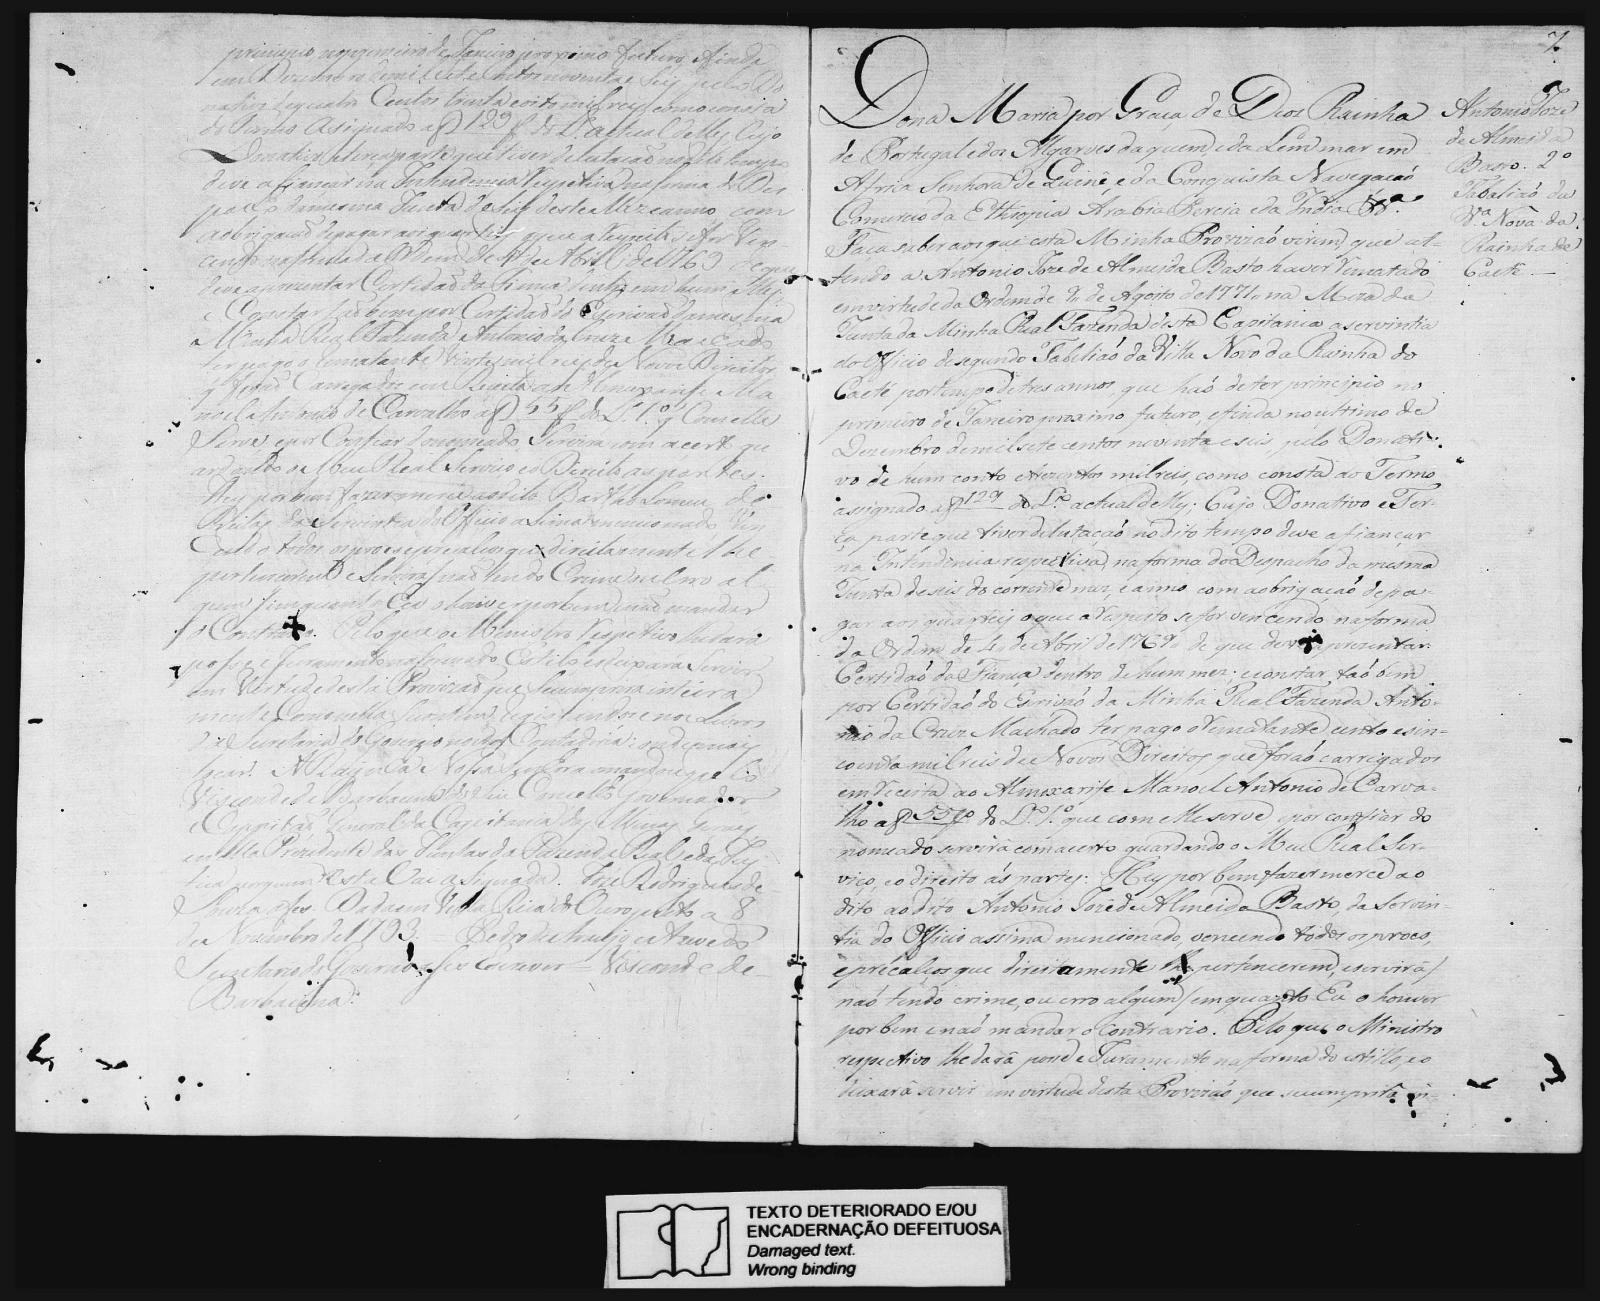 principio no primeiro de Janeiro proximo futuro, e finda
em Dezembro de mil sete centos noventa e seis pelo Do
nativo de quatro Centos trinta e oito mil reis como consta
do Termo asignado a f 129 do L.º actual delles, Cujo
Donativo e terça parte que tiver de lutação no dito tempo
deve afiançar na Intendencia respetiva na forma do Des
pacho da mesma Junta de seis deste Mez e anno com
a obrigação de pagar aos quarteis o que a respeito se for ven
cendo na forma da Ordem de 4 de Abril de 1769 de que
deve aprezentar Certidão da Fiança dentro em hum Mez
e Constar tão bem por Certidão do Escrivão da mesma
Minha Real Fazenda Antonio da Cruz Machado
ter pago o rematante Vinte mil reis de Novos Direitos
q forão Carregados em Receita ao Almoxarife Ma
noel Antonio de Carvalho a f 55 do L.º 1.º q Com elle
Serve e por Confiar do nomeado Servirá com acerto gu
ardando o Meu Real Serviço e o Direito as partes.
Hey por bem fazer merce ao dito Bartholomeu
da Serventia do Officio a Sima mencionado Ven
cendo todos os proes e precalsos que direitamente lhe
pertencerem e Servirá não tendo Crime ou erro al
gum em quanto Eu o houver por bem e não mandar
o Contrario. Pelo que o Ministro respetivo lhe dará
posse e Juramento na forma do Estilo e o deixará Servir
em Vertude desta Provizão que se cumprirá inteira
mente Como nella Se contem registandose nos Livros
da Secretaria do Governo nos da Contadoria e onde mais
tocar. A Rainha Nossa Senhora o mandou pelo
Visconde de Barbacena do Seu Conselho Governador
e Cappitão General da Capitania de Minas Geraes
e nella Prezidente das Juntas da Fazenda Real e da Jus
tiça por quem Esta Vai asignada. Joze Rodrigues de
Souza a fes. Dada em Villa Rica do Ouro preto a 8
de Novembro de 1793 = Pedro de Araujo e Azevedo
Secretario do Governo a fez escrever = Visconde de
Barbacena.
7.
Dona Maria por Graça de Deos Rainha
de Portugal e dos Algarves daquem, e da Lem mar em
Africa Senhora de Guiné, e da Conquista Navegaçaõ
Comercio da Ethiopia Arabia Percia e da India &.ª
Faço saber aos que esta Minha Provizaõ virem, que at-
tendo a Antonio Joze de Almeida Basto haver rematado
em virtude da Ordem de 7 de Agosto de 1771 na Meza da
Junta da Minha Real Fazenda desta Capitania a serventia
do Officio de segundo Tabeliaõ da Villa Nova da Rainha do
Caeté por tempo de tres annos, que haõ de ter principio no
primeiro de Janeiro proximo futuro, e finda no ultimo de
Dezembro de mil sete centos noventa e seis, pelo Donati-
vo de hum conto e trezentos mil reis, como consta do Termo
assignado a f 129 do L.º actual delles; Cujo Donativo e Ter-
ça parte que tiver de lutaçaõ no dito tempo deve afiançar
na Intendencia respectiva, na forma do Despacho da mesma
Junta de seis do corrente mez, e anno com a obrigaçaõ de pa-
gar aos quarteis o que a respeito se for vencendo na forma
da Ordem de 4 de Abril de 1769 de que deve aprezentar
Certidaõ da Fiança dentro de hum mez; e constar taõ bem
por Certidaõ do Escrivaõ da Minha Real Fazenda Anto-
nio da Cruz Machado ter pago o rematante cento e sin-
coenta mil reis de Novos Direitos, que foraõ carregados
em receita ao Almoxarife Manoel Antonio de Carva-
lho a f 55 do L.º 1.º que com elle serve e por confiar do
nomeado servirá com acerto guardando o Meu Real Ser-
viço, e o direito ás partes: Hey por bem fazer merce ao
dito ao dito Antonio Joze de Almeida Basto, da Serven-
tia do Officio assima mencionado, vencendo todos os proes,
e precalços que direitamente lhe pertencerem, e servirá/
naõ tendo crime, ou erro algum/ em quanto Eu o houver
por bem e naõ mandar o contrario. Pelo que o Ministro
respectivo lhe dará posse e Juramento na forma do estillo, e o
deixará servir em virtude desta Provizaõ que se cumprirá in-
Antonio Joze
de Almeida
Basto. 2º
Tabaliaõ da
V.ª Nova da
Rainha do
Caeté —
TEXTO DETERIORADO E/OU
ENCADERNAÇÃO DEFEITUOSA
Damaged text.
Wrong binding